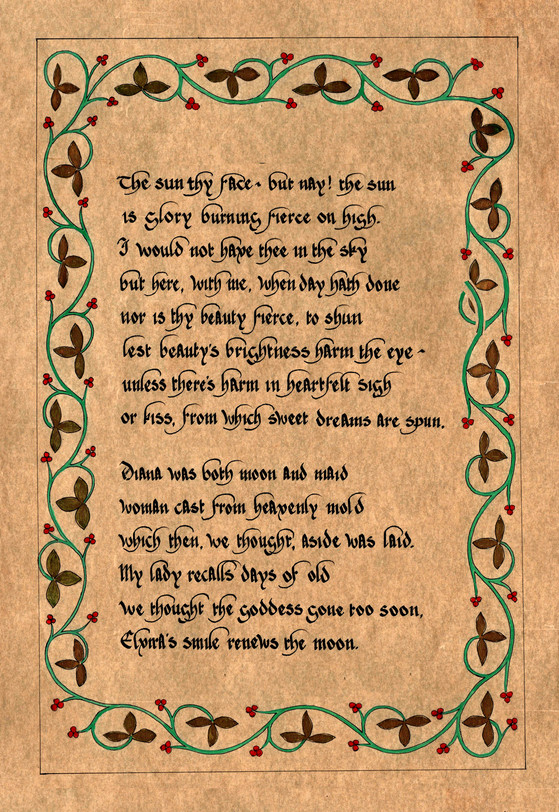 The sun thy face - but nay! the sun
is glory burning fierce on high.
I would not have thee in the sky
but here, with me, when day hath done
nor is thy beauty fierce, to shun
lest beauty's brightness harm the eye -
unless there's harm in heartfelt sigh
or kiss, from which sweet dreams are spun.
Diana was both moon and maid
woman cast from heavenly mold
which then, we thought, aside was laid.
My lady recalls days of old
we thought the goddess gone too soon,
smile renews the moon.